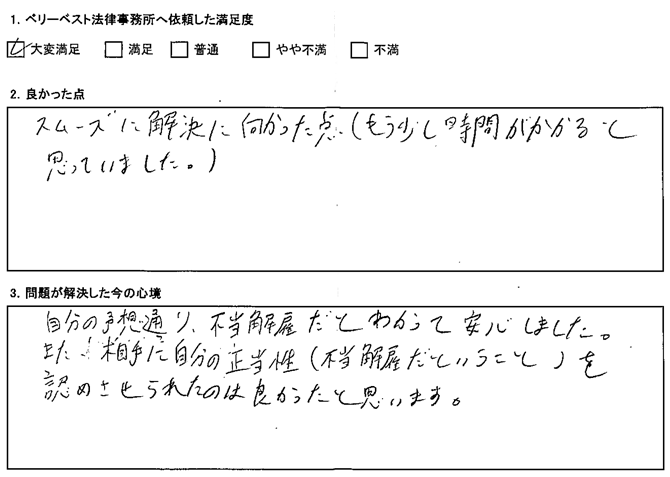 1. ベリーベスト法律事務所へ依頼した満足度
大変満足 満足 普通 やや不満 不満
2. 良かった点
スムーズに解決に向かった点(もう少し時間がかかると
思っていました。)
3. 問題が解決した今の心境
自分の予想通り、不当解雇だとわかって安心しました。
また、相手に自分の正当性(不当解雇だということ)を
認めさせられたのは良かったと思います。